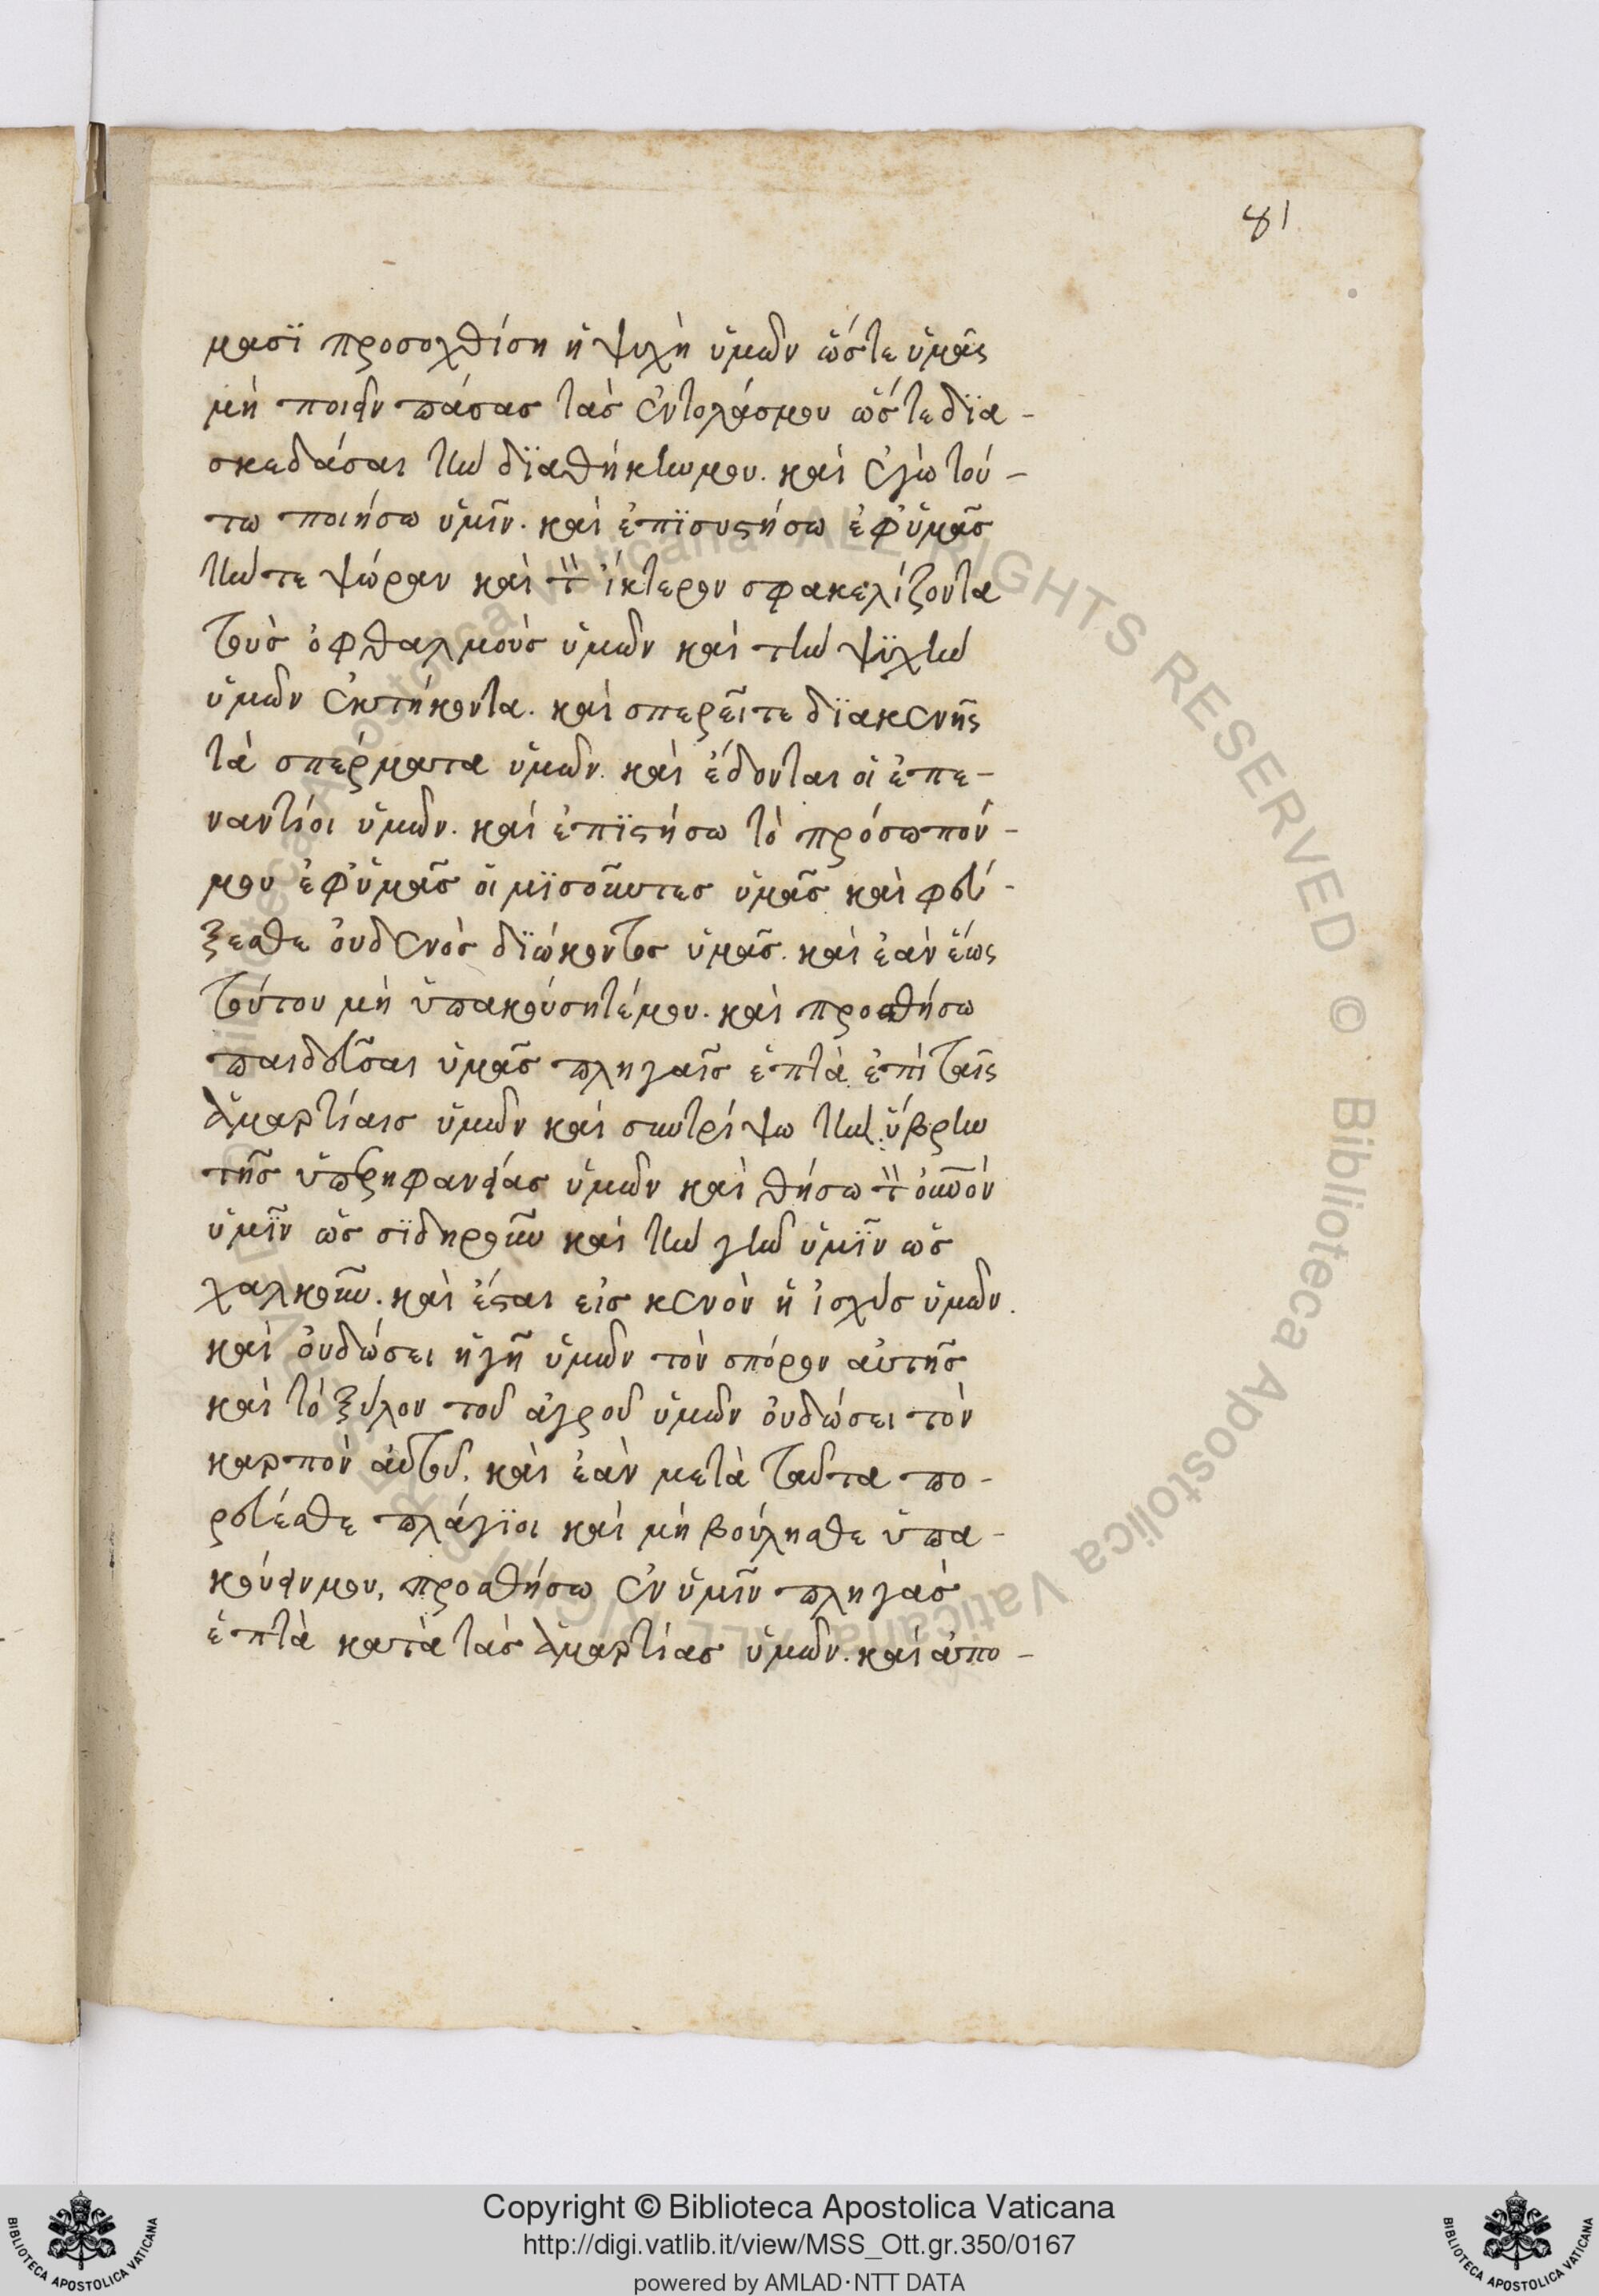 81
μασϊ προσοχθίση ἡ ψυχὴ ὑμῶν ὥστε ὑμᾶς
μὴ ποιεῖν πάσας τὰσ ἐντολάσμου ὥστε δϊα-
σκεδάσαι τὴν δϊαθήκημμου. καὶ ἐγὼ τού-
τω ποιήσω ὑμῖν. καὶ ἐπϊσυστήσω ἐφ' ὑμᾶσ
τήν τε ψώραν καὶ τὸν ἴκτερον σφακελίζοντα
τοὺσ ὀφθαλμοὺσ ὑμῶν καὶ τὴν ψϋχὴν
ὑμῶν ἐκτήκοντα. καὶ σπερεῖτε δϊακενῆς
τὰ σπέρματα ὑμῶν. καὶ ἔδονται οἱ ἐπε-
ναντίοι ὑμῶν. καὶ ἐπϊστήσω τὸ πρόσωπόν-
μου ἐφ' ὑμᾶσ οἱ μϊσοῦντεσ ὑμᾶσ καὶ φεύ-
ξεσθε ὀυδενὸσ δϊώκοντοσ ὑμᾶσ. καὶ ἐὰν ἕως
τούτου μὴ ὑπακούσητέμου. καὶ προσθήσω
παιδεῦσαι ὑμᾶσ πληγαῖσ ἑπτὰ ἐπὶ ταῖς
ἁμαρτίαισ ὑμῶν καὶ συντρίψω τὴν ὕβριν
τῆσ ὑπερηφανείασ ὑμῶν καὶ θήσω τὸν ὀυνὸν
ὑμῖν ὡσ σϊδηροῦν καὶ τὴν γῆν ὑμῖν ὡσ
χαλκοῦν. καὶ ἔσται εἰσ κενὸν ἡ ἰσχὺσ ὑμῶν.
καὶ ὀυδώσει ἡ γῆ ὑμῶν τὸν σπόρον ἀυτῆσ
καὶ τὸ ξύλον τοῦ ἀγροῦ ὑμῶν ὀυδώσει τὸν
καρπὸν ἀυτοῦ. καὶ ἐὰν μετὰ ταῦτα πο-
ρεύεσθε πλάγϊοι καὶ μὴ βούλησθε ὑπα-
κούεινμου, προσθήσω ἐν ὑμῖν πληγὰσ
ἑπτὰ κατὰ τὰσ ἁμαρτίασ ὑμῶν. καὶ ἀπο-
Biblioteca Apostolica Vaticana ALL RIGHTS RESERVED © Biblioteca Apostolica Vaticana ALL RIGHTS RESERVED ©
Copyright © Biblioteca Apostolica Vaticana
http://digi.vatlib.it/view/MSS_Ott.gr.350/0167
powered by AMLAD·NTT DATA
BIBLIOTECA APOSTOLICA VATICANA
BIBLIOTECA APOSTOLICA VATICANA